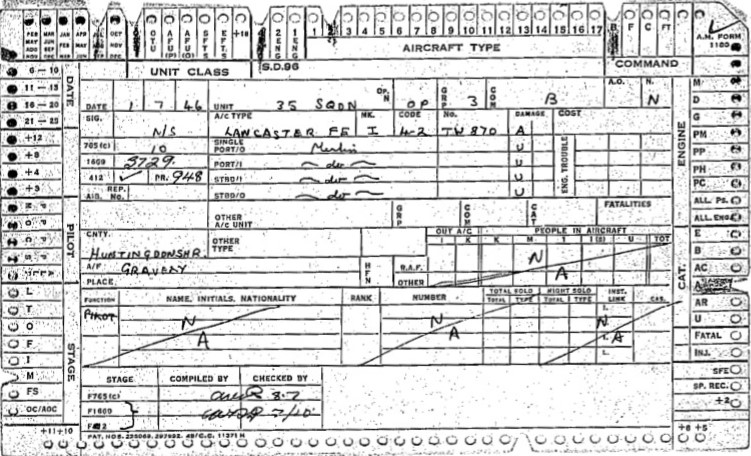 FEB MAR JAN APR OCT
MAY JUN NOV
AUG SEP DEC
OTU AFU(P) AFU(O) SFTS EFTS +18
2 ENG 1 ENG 1 3 4 5 6 7 8 9 10 11 12 13 14 15 16 17
B F C FT
A.M. FORM 1180
AIRCRAFT TYPE
UNIT CLASS S.D.96 COMMAND
6-10
11-15
16-20
21-25
+12
+8
+4
DATE
DATE 1 7 46 UNIT 35 SQDN OP.N OP GRP 3 COM B A.O. N. N
SIG. N/S A/C TYPE LANCASTER FE MK. I CODE 4-2 No. TW 870 DAMAGE A COST
765(c) 10 SINGLE PORT/O Merlin U
1609 3729 PORT/I do U
412 ✓ PR. 948 STBD/I do U
AIB. REP. No. STBD/O do U
ENG. TROUBLE
OTHER A/C UNIT GRP COM CAT FATALITIES
CNTY. HUNTINGDONSHR. OTHER TYPE
OUT A/C PEOPLE IN AIRCRAFT
I K K M I I(S) U TOT
A/F GRAVELY HFN R.A.F. N
PLACE. OTHER A
FUNCTION NAME, INITIALS, NATIONALITY RANK NUMBER TOTAL SOLO NIGHT SOLO INST. LINK CAS.
TOTAL TYPE TOTAL TYPE
PILOT N N N
A A A
STAGE COMPILED BY CHECKED BY
F765(C) 8.7
F1609 7/10
F412
PAT. NOS.
+11 +10 +8 +5
PILOT
STAGE
L
T
O
F
I
M
FS
OC/AOC
ENGINE
M
D
G
PM
PP
PH
PC
ALL PS.
ALL ENGS
CAT.
E
B
AC
A
AR
U
FATAL
INJ.
SFE
SP. REC.
+2